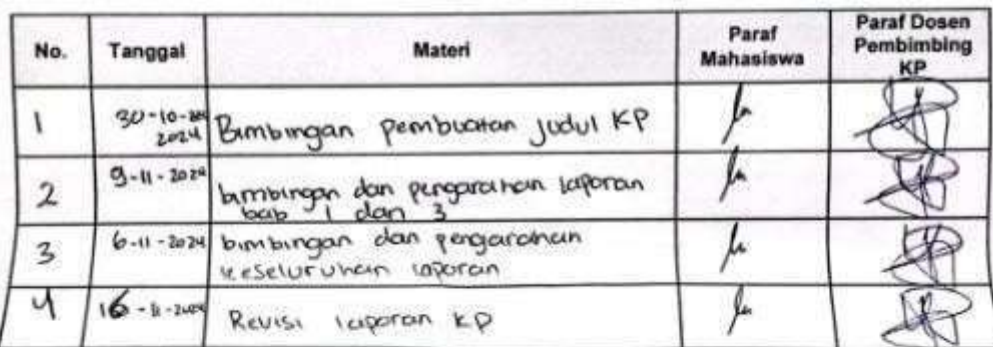 No. Tanggal Materi Paraf Mahasiswa Paraf Dosen Pembimbing KP
1 30-10-2024 Bimbingan pembuatan judul KP
2 9-11-2024 bimbingan dan pengarahan laporan
bab 1 dan 3
3 6-11-2024 bimbingan dan pengarahan
keseluruhan laporan
4 16-11-2024 Revisi laporan KP